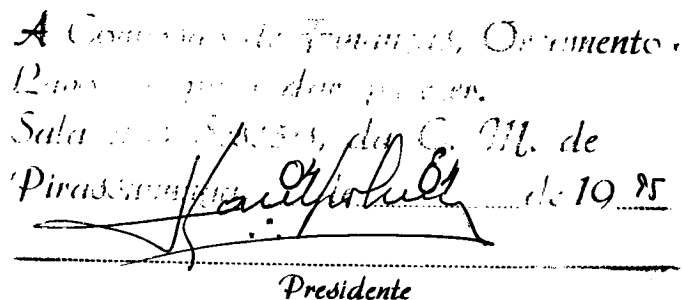 A Comissão de Finanças, Orçamento e
para dar parecer.
Sala das Sessões, da C. M. de
Pirassununga, 07 de 08 de 19 95
Presidente